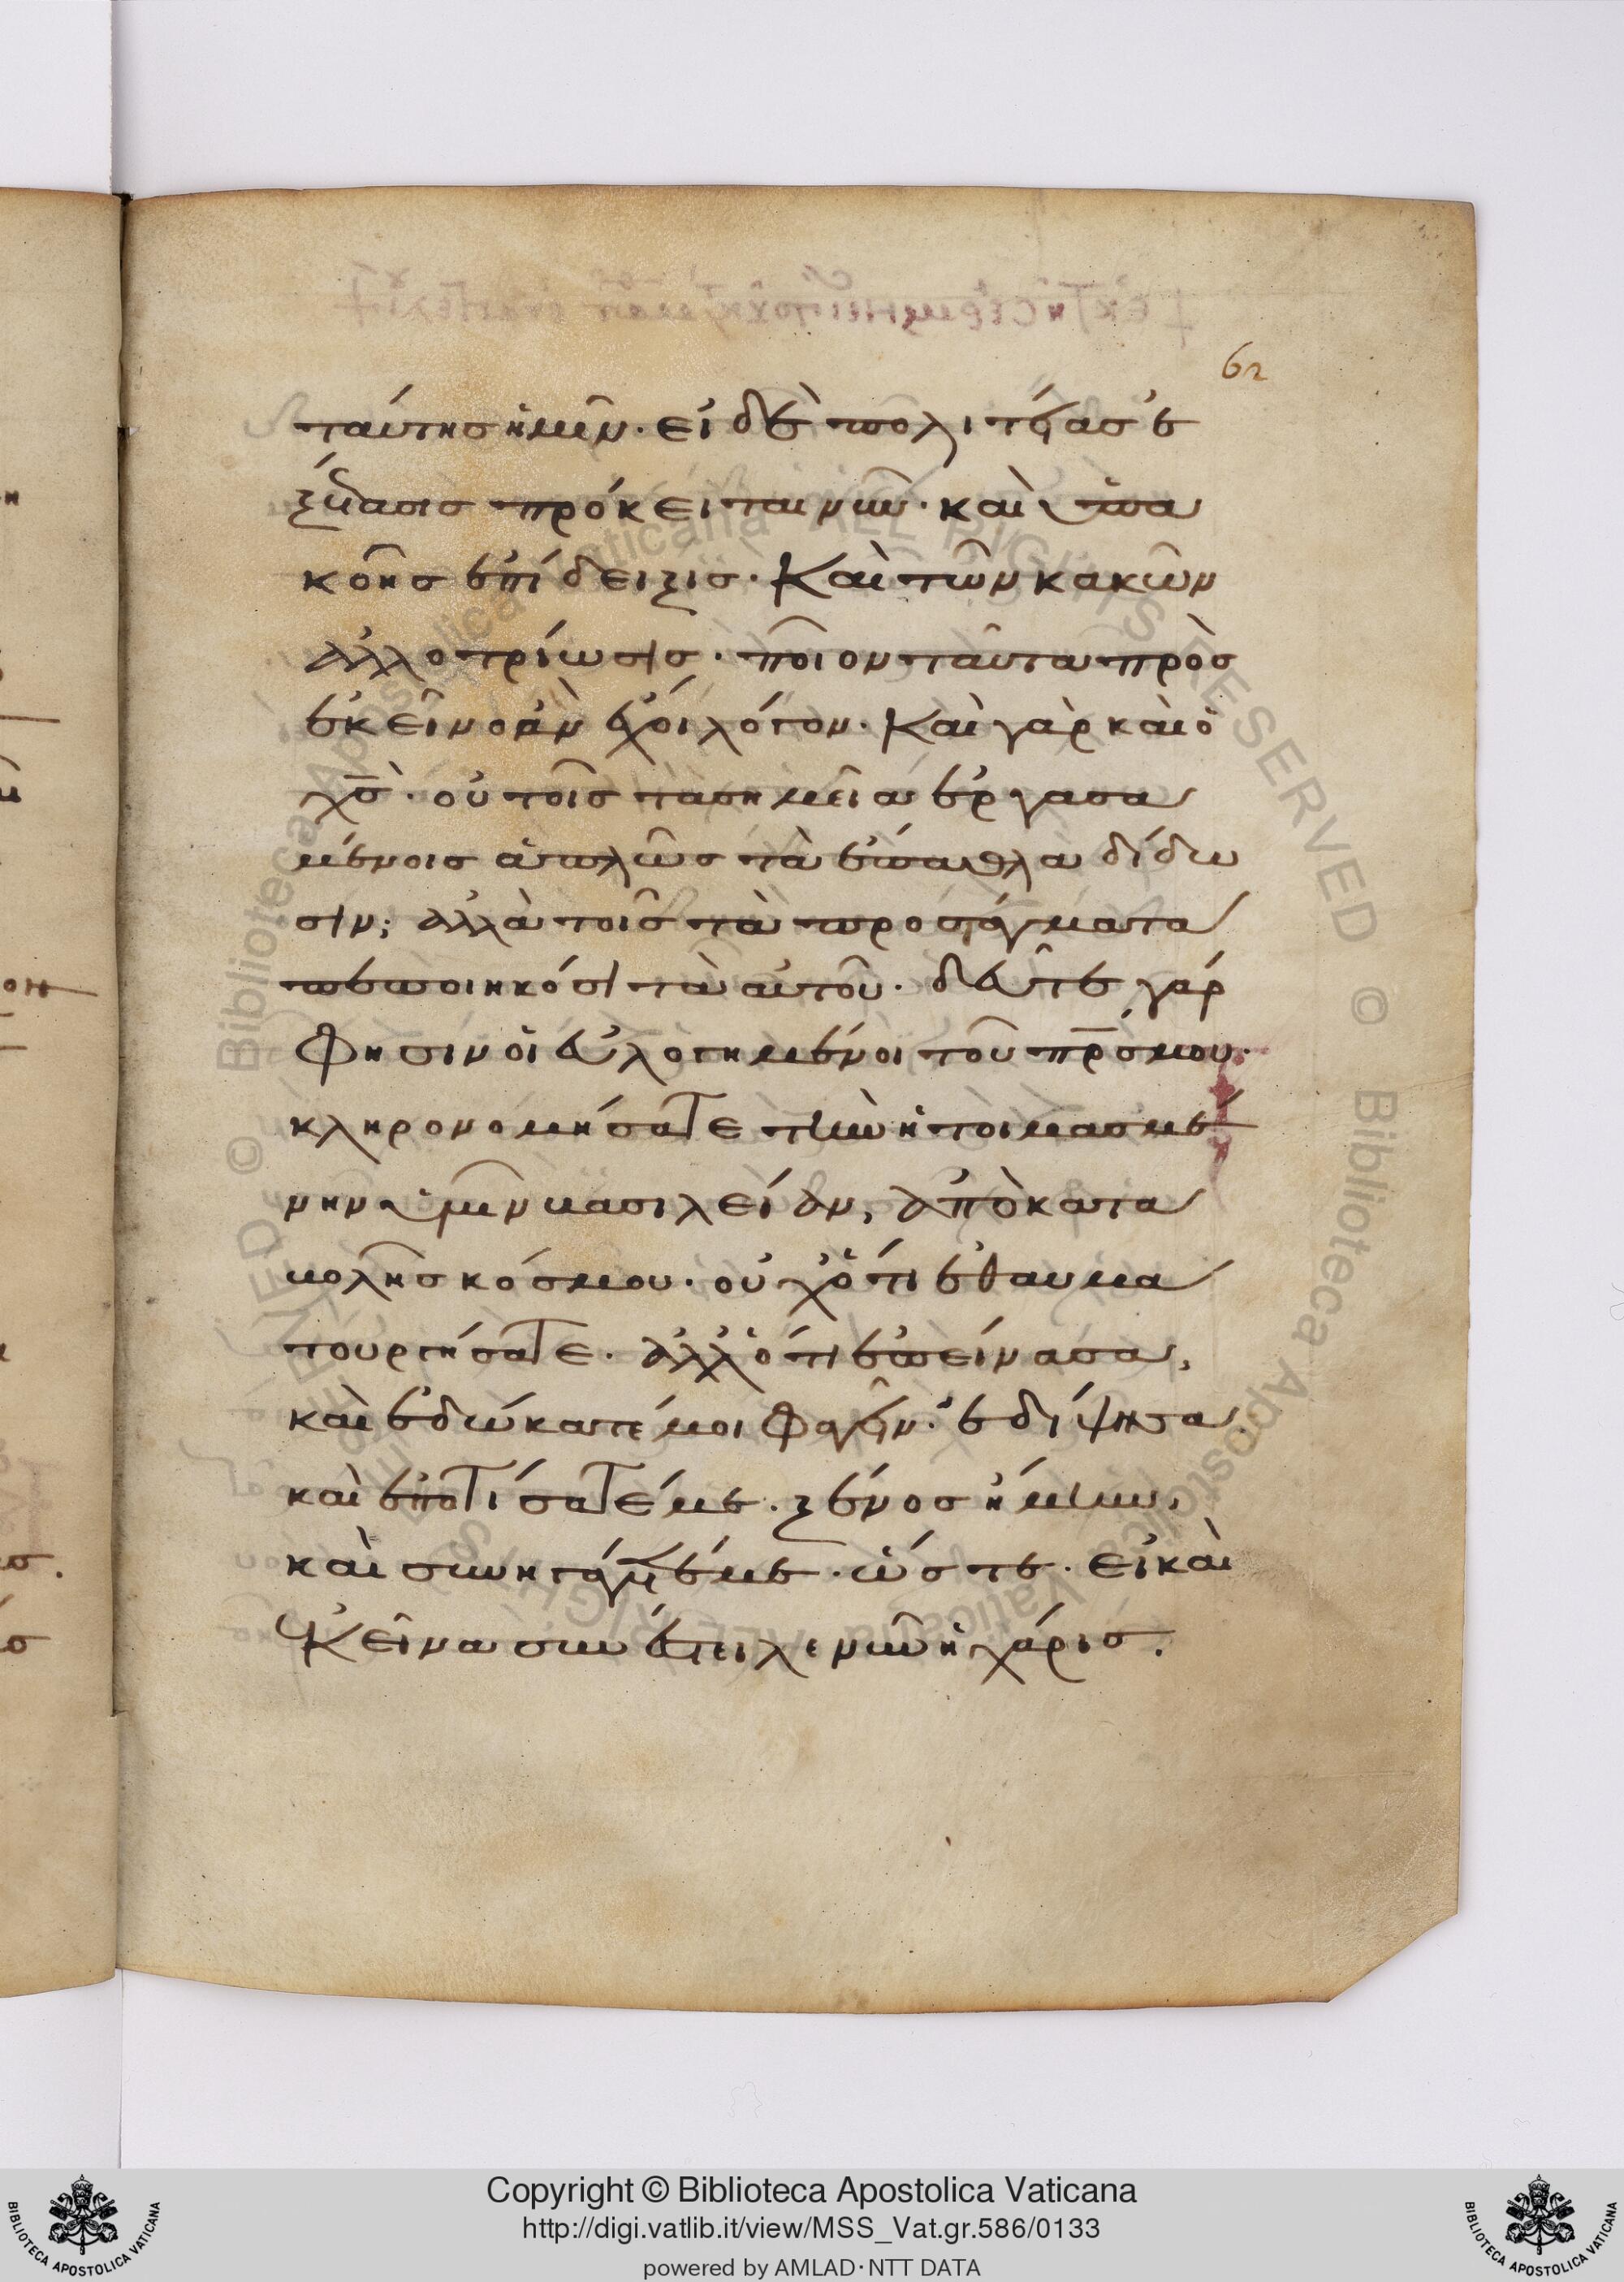 62
ταύτης ἡμῖν. εἰ δὲ πολιτείας ἐ
ξέτασις πρόκειται νῦν. καὶ ὑπα
κοῆς ἐπίδειξις. Καὶ τῶν κακῶν
ἀλλοτρίωσις. ποῖον ταῦτα πρὸς
ἐκεῖνο ἂν ἔχοι λόγον. Καὶ γὰρ καὶ ὁ
χς. οὐ τοῖς τὰ σημεῖα ἐργασα
μένοις ἁπλῶς τὰ ἔπαθλα δίδω
σιν; ἀλλὰ τοῖς τὰ προστάγματα
πεποιηκόσι τὰ αὐτοῦ. δεῦτε γάρ
φησιν οἱ εὐλογημένοι τοῦ πρσ μου.
κληρονομήσατε τὴν ἡτοιμασμέ
νην ὑμῖν βασιλείαν, ἀπὸ κατα
βολῆς κόσμου. οὐχ ὅτι ἐθαυμα
τουργήσατε. ἀλλ' ὅτι ἐπείνασα,
καὶ ἐδώκατέ μοι φαγεῖν. ἐδίψησα
καὶ ἐποτίσατέ με. ξένος ἤμην,
καὶ συνηγάγετέ με. ὥστε. εἰ καὶ
ἐκεῖνα συνέστειλε νῦν ἡ χάρις.
Copyright © Biblioteca Apostolica Vaticana
http://digi.vatlib.it/view/MSS_Vat.gr.586/0133
powered by AMLAD·NTT DATA
BIBLIOTECA APOSTOLICA VATICANA
BIBLIOTECA APOSTOLICA VATICANA